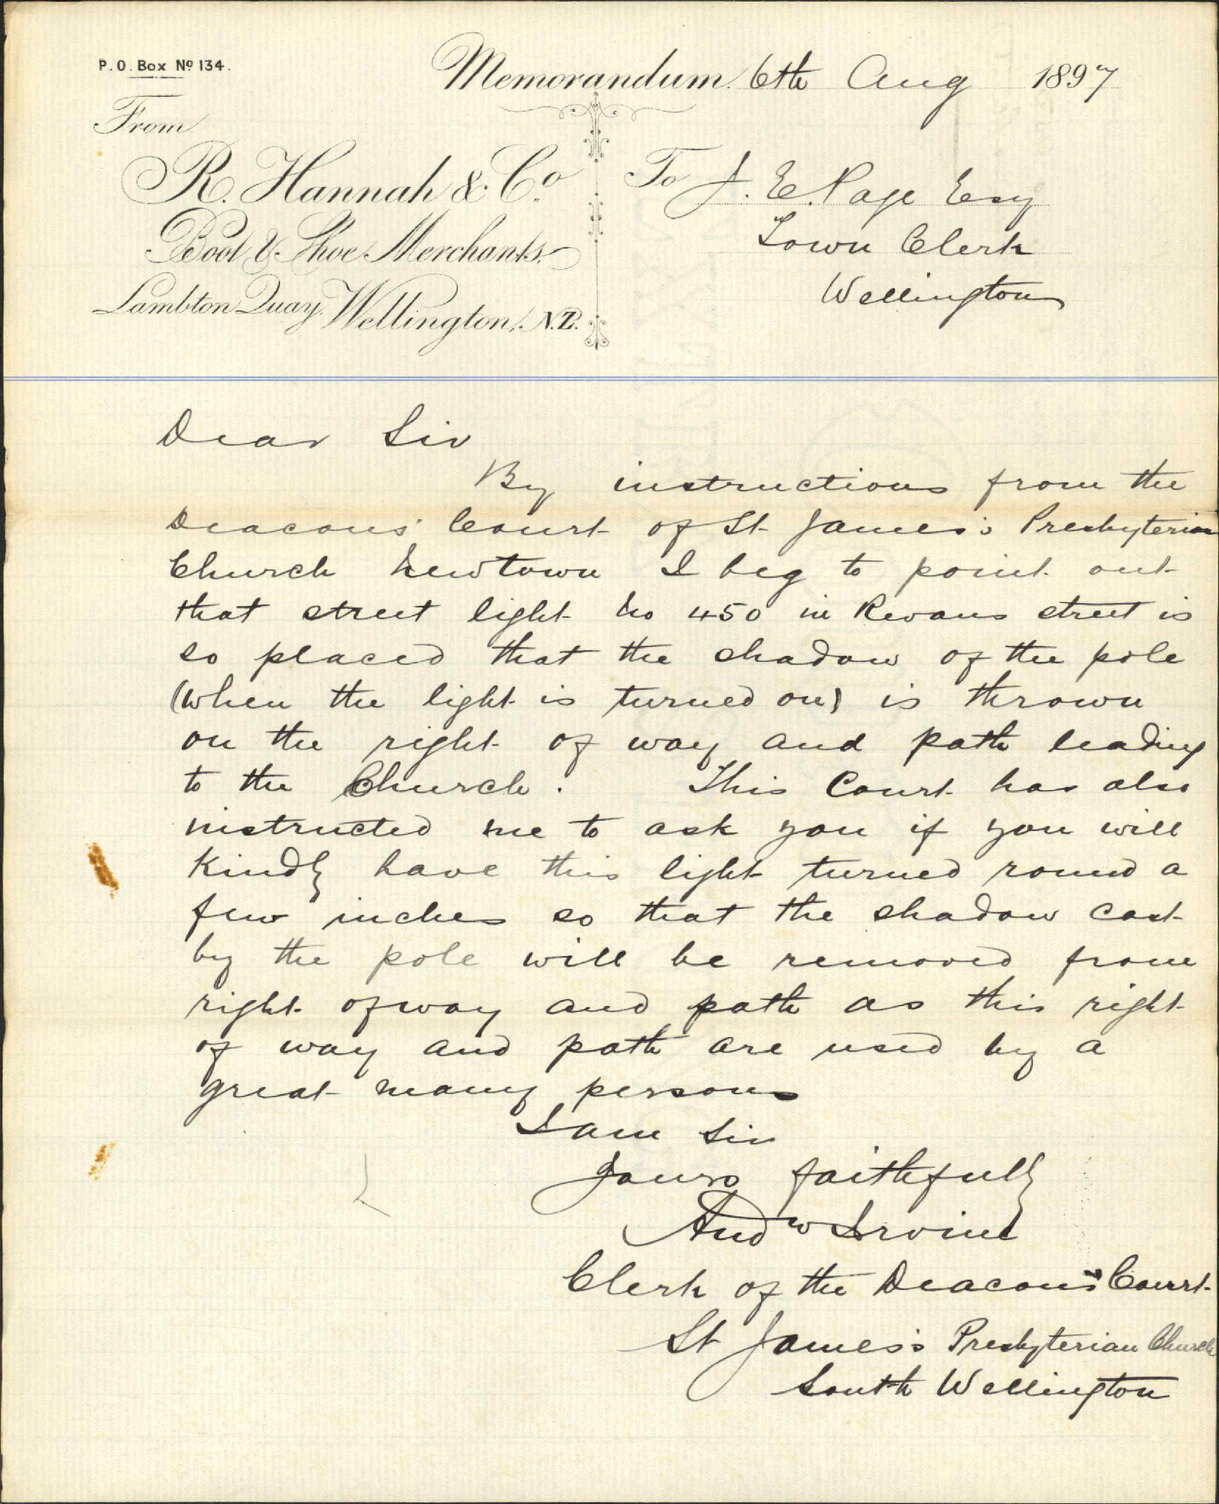 P.O. Box Nº 134.
Memorandum 6th Aug 1897
From
R. Hannah & Co.
Boot & Shoe Merchants.
Lambton Quay, Wellington, N.Z.
To J. E. Page Esq
Town Clerk
Wellington
Dear Sir
By instructions from the
Deacons' Court of St James's Presbyterian
Church Newtown I beg to point out
that street light No 450 in Revans street is
so placed that the shadow of the pole
(when the light is turned on) is thrown
on the right of way and path leading
to the Church. This Court has also
instructed me to ask you if you will
kindly have this light turned round a
few inches so that the shadow cast
by the pole will be removed from
right of way and path as this right
of way and path are used by a
great many persons
I am Sir
Yours faithfully
Andw Irvine
Clerk of the Deacons' Court
St James's Presbyterian Church
South Wellington